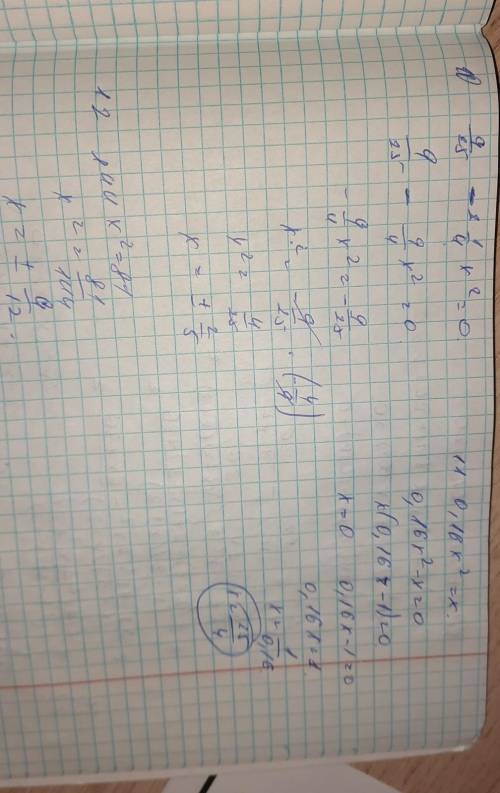 10 9/25 - 2 1/4 x² = 0.
9/25 - 9/4 x² = 0.
- 9/4 x² = - 9/25
x² = - 9/25 · (- 4/9)
x² = 4/25
x = ± 2/5
12 144 x² = 81
x² = 81/144
x = ± 9/12.
11 0,16x² = x.
0,16x² - x = 0
x(0,16x - 1) = 0
x = 0 0,16x - 1 = 0
0,16x = 1.
x = 1/0,16
x = 25/4